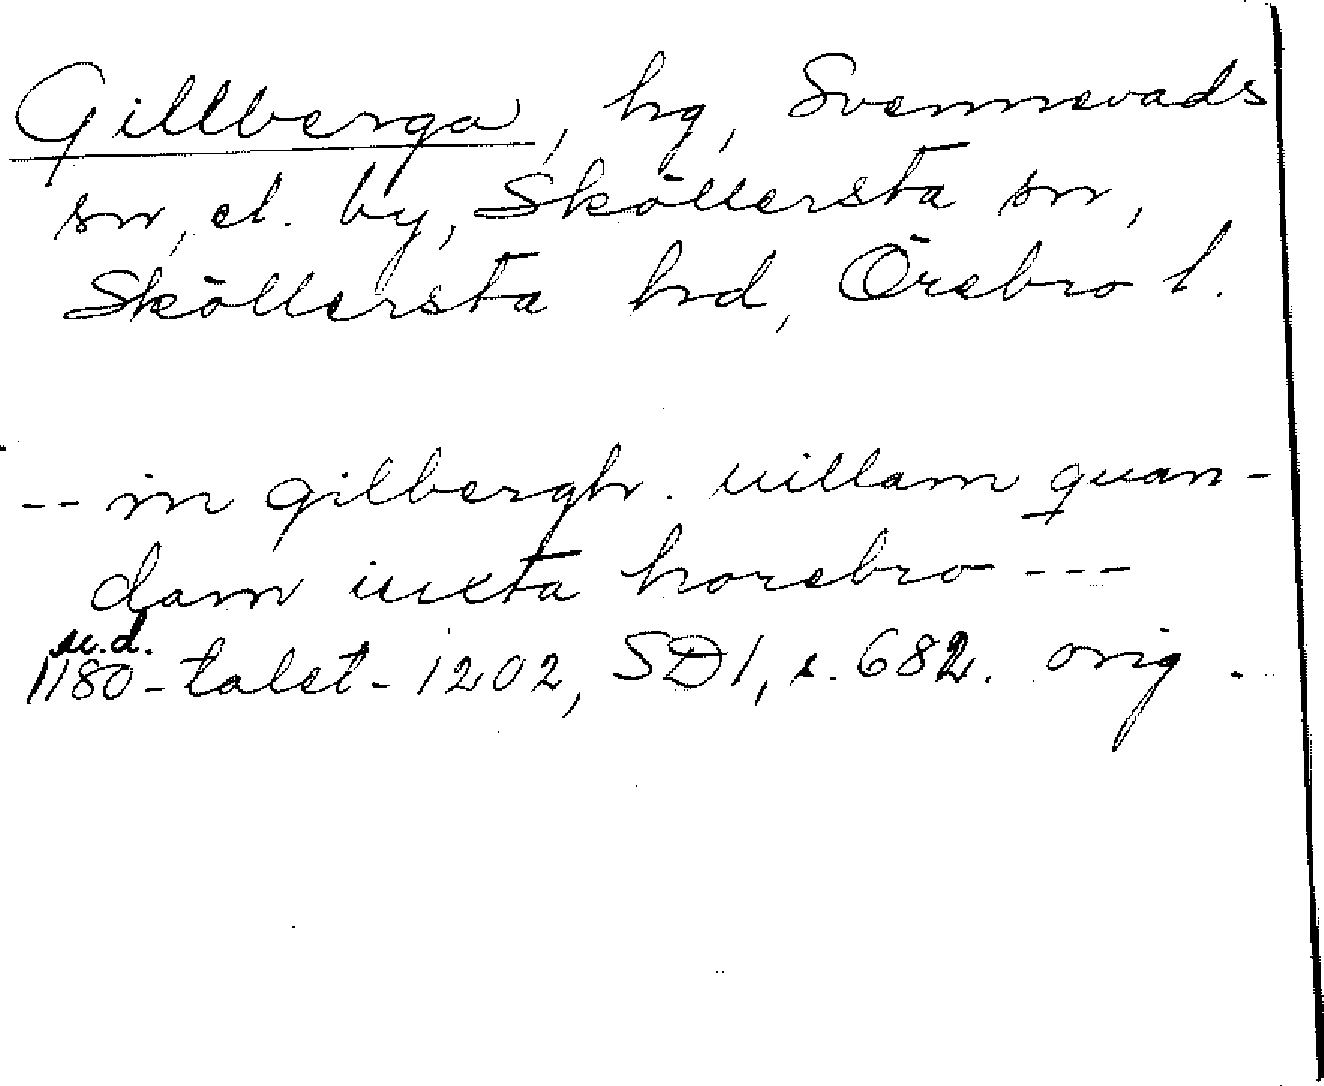 Gillberga, hg, Svennevads
sn, el. by, Sköllersta sn,
Sköllersta hd, Örebro l.
-- in gilbergh. uillam quan-
dam iuxta horebro ---
u.d.
1180-talet-1202, SD1, s. 682. orig.